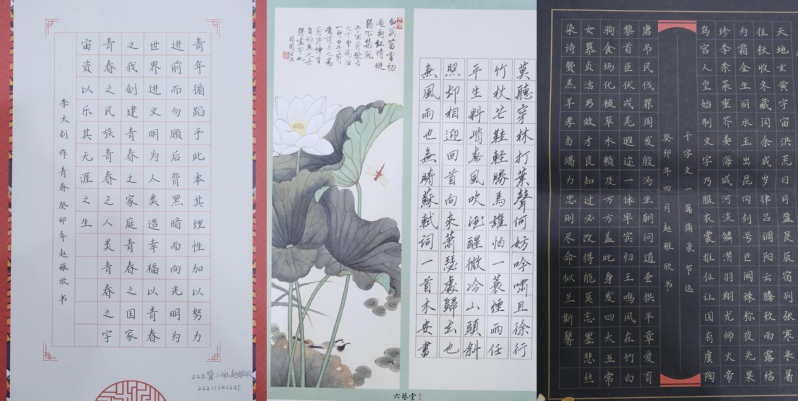 青年循蹈乎此本其理性加以努力
进前而勿顾后背黑暗而向光明为
世界进文明为人类造幸福以青春
之我创建青春之家庭青春之国家
青春之民族青春之人类青春之宇
宙资以乐其无涯之生
李大钊作青春癸卯年赵雅欣书
莫聽穿林打葉聲何妨吟嘯且徐行
竹杖芒鞋輕勝馬誰怕一蓑煙雨任
平生料峭春風吹酒醒微冷山頭斜
照却相迎回首向來蕭瑟處歸去也
無風雨也無晴蘇軾詞一首木安書
六藝堂
天地玄黄宇宙洪荒日月盈昃辰宿列张寒来暑
往秋收冬藏闰余成岁律吕调阳云腾致雨露结
为霜金生丽水玉出昆冈剑号巨阙珠称夜光果
珍李柰菜重芥姜海咸河淡鳞潜羽翔龙师火帝
鸟官人皇始制文字乃服衣裳推位让国有虞陶
千字文一篇摘录节选
癸卯年四月赵雅欣书
唐吊民伐罪周发殷汤坐朝问道垂拱平章爱育
黎首臣伏戎羌遐迩一体率宾归王鸣凤在竹白
驹食场化被草木赖及万方盖此身发四大五常
女慕贞洁男效才良知过必改得能莫忘墨悲丝
染诗赞羔羊孝当竭力忠则尽命似兰斯馨